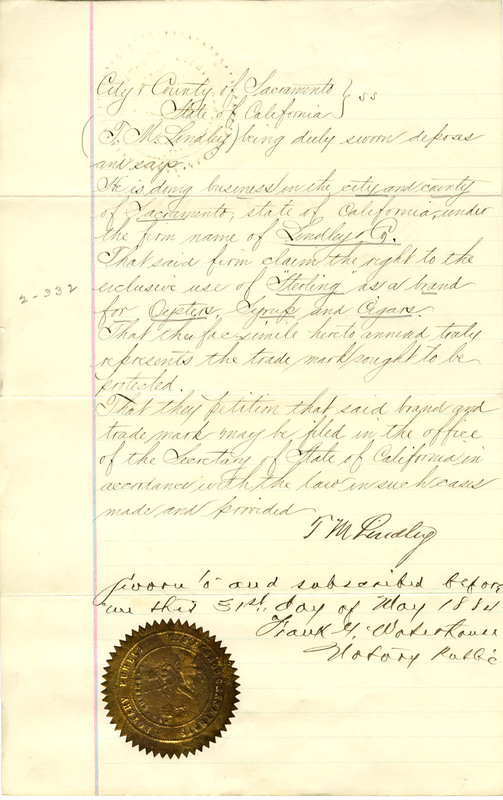 City & County of Sacramento } ss
State of California
(T. M. Lindley) being duly sworn deposes
and says.
He is doing business in the city and county
of Sacramento, state of California, under
the firm name of Lindley & Co.
That said firm claim the right to the
exclusive use of "Sterling" as a brand
for Oysters, Syrup and Cigars.
That the fac simile hereto annexed truly
represents the trade mark sought to be
protected.
That they petition that said brand and
trade mark may be filed in the office
of the Secretary of State of California in
accordance with the law in such cases
made and provided
T M Lindley
2-332
Sworn to and subscribed before
me this 31st. day of May 1884
Frank H. Waterhouse
Notary Public
NOTARY PUBLIC